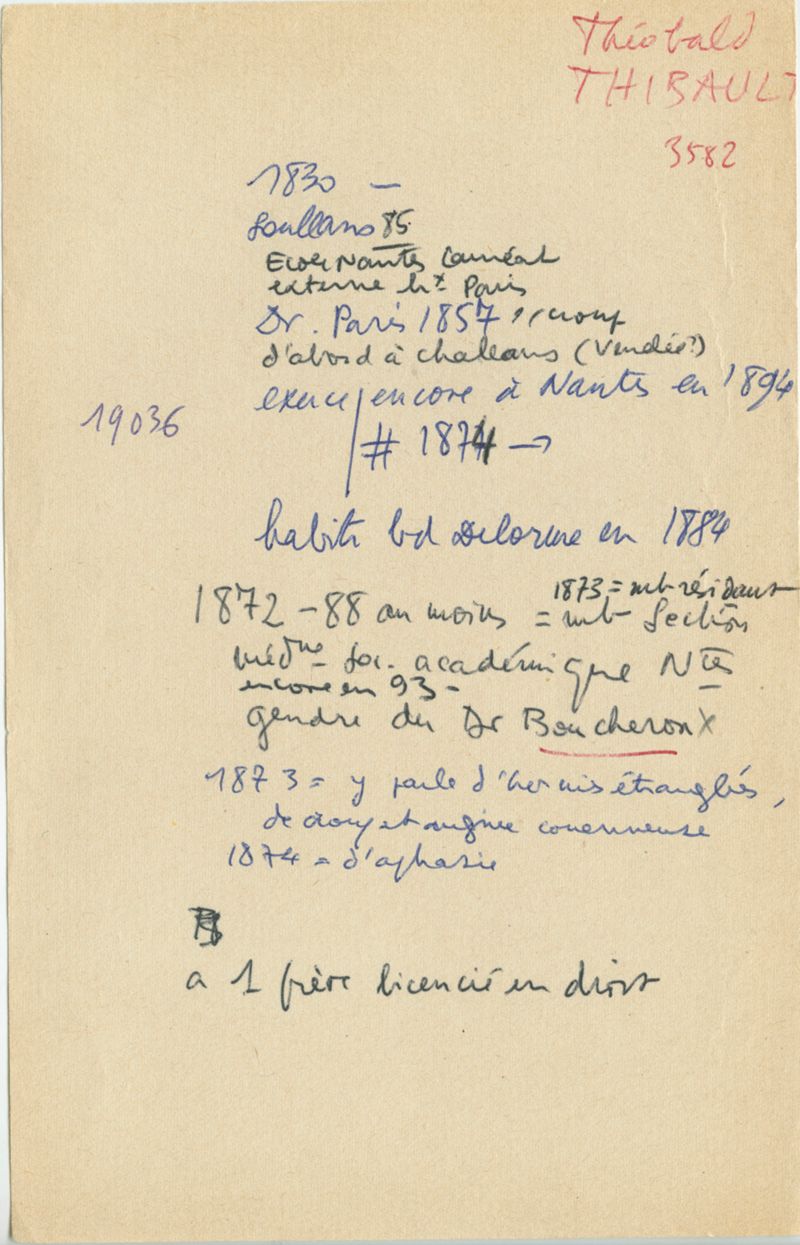 Théobald
THIBAULT
3582
1830 –
Soullans 85
Ecole Nantes Lauréat
externe hx Paris
Dr. Paris 1857 croup
d'abord à challans (Vendée?)
exerce encore à Nantes en 1894
19036
# 1874 →
habite bd Delorme en 1884
1873 = mb résidant
1872 – 88 au moins = mb Section
médne – Soc. académique Ntes
encore en 93 –
gendre du Dr Boucheron x
1873 = y parle d'hernies étranglées,
de croup et angine couenneuse
1874 = d'aphasie
a 1 frère licencié en droit